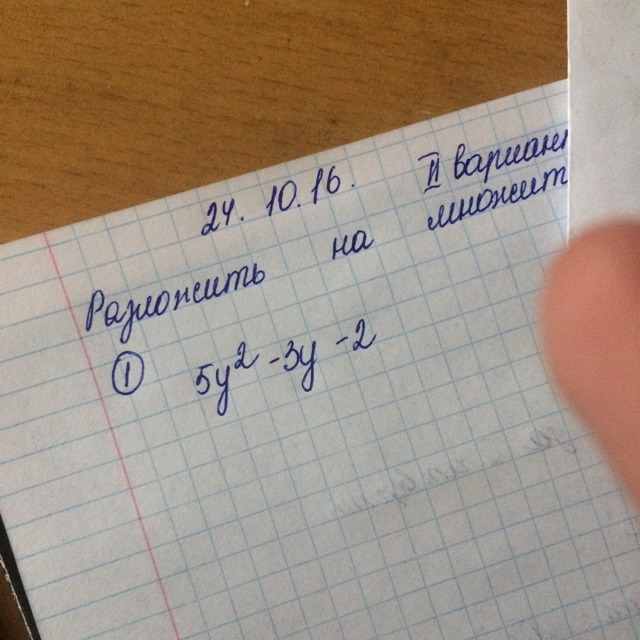 24. 10. 16. II вариан
Разложить на множит
① 5y² -3y -2